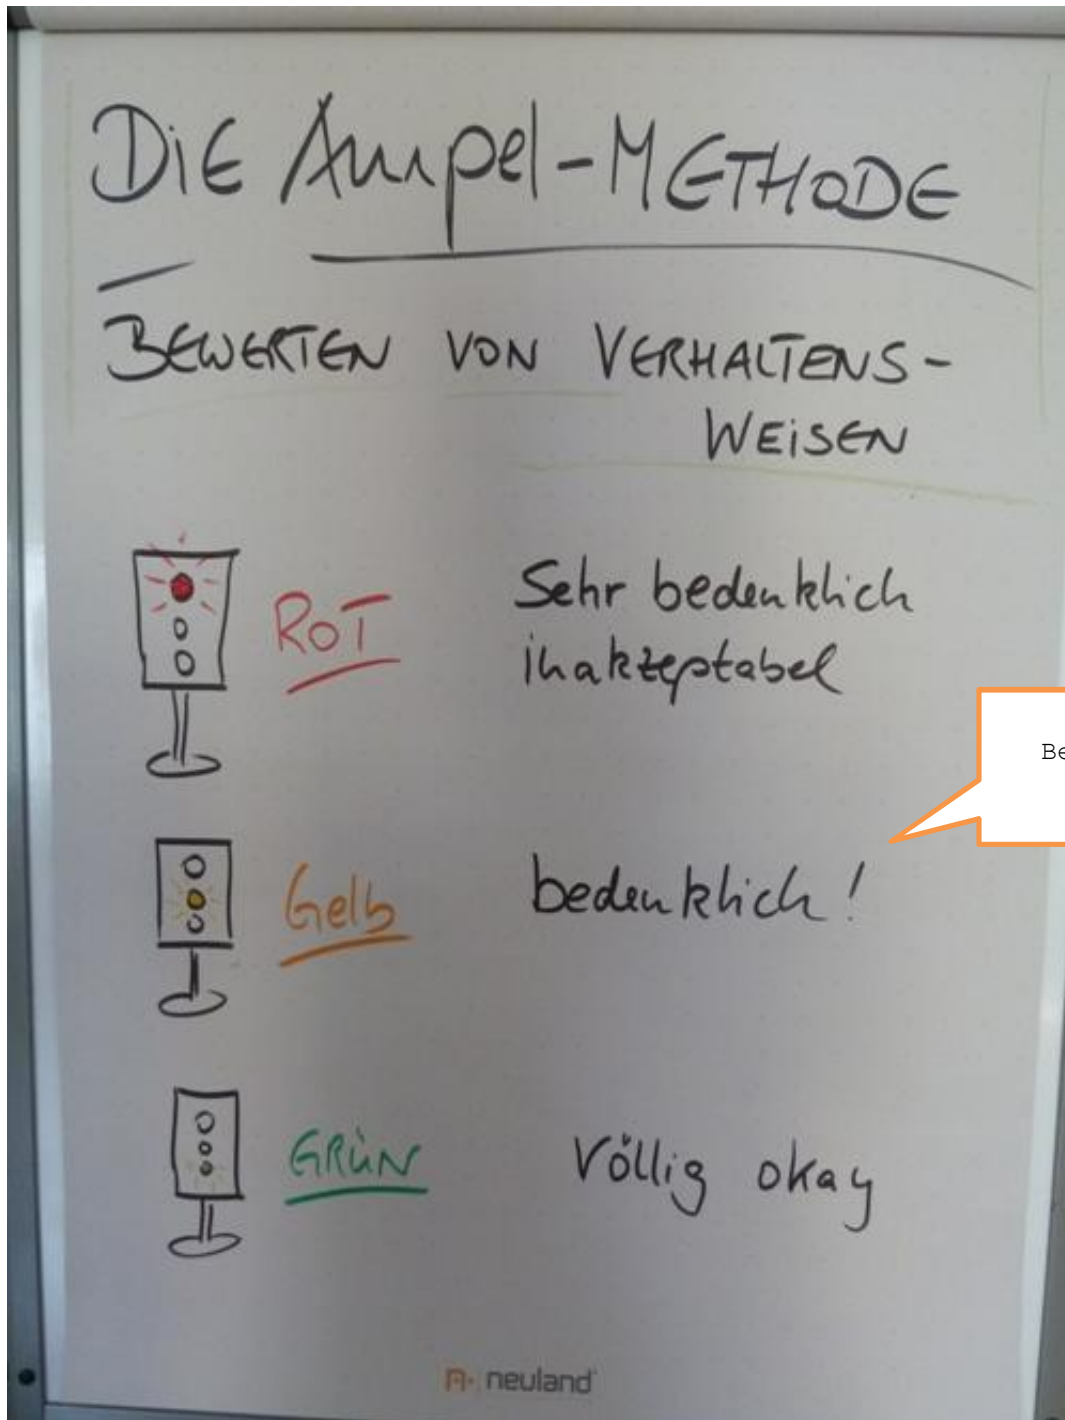 DiE Ampel-METHODE
BEWERTEN VON VERHALTENS-
WEiSEN
ROT
Sehr bedenklich
inakzeptabel
Be
Gelb
bedenklich!
GRÜN
Völlig okay
neuland